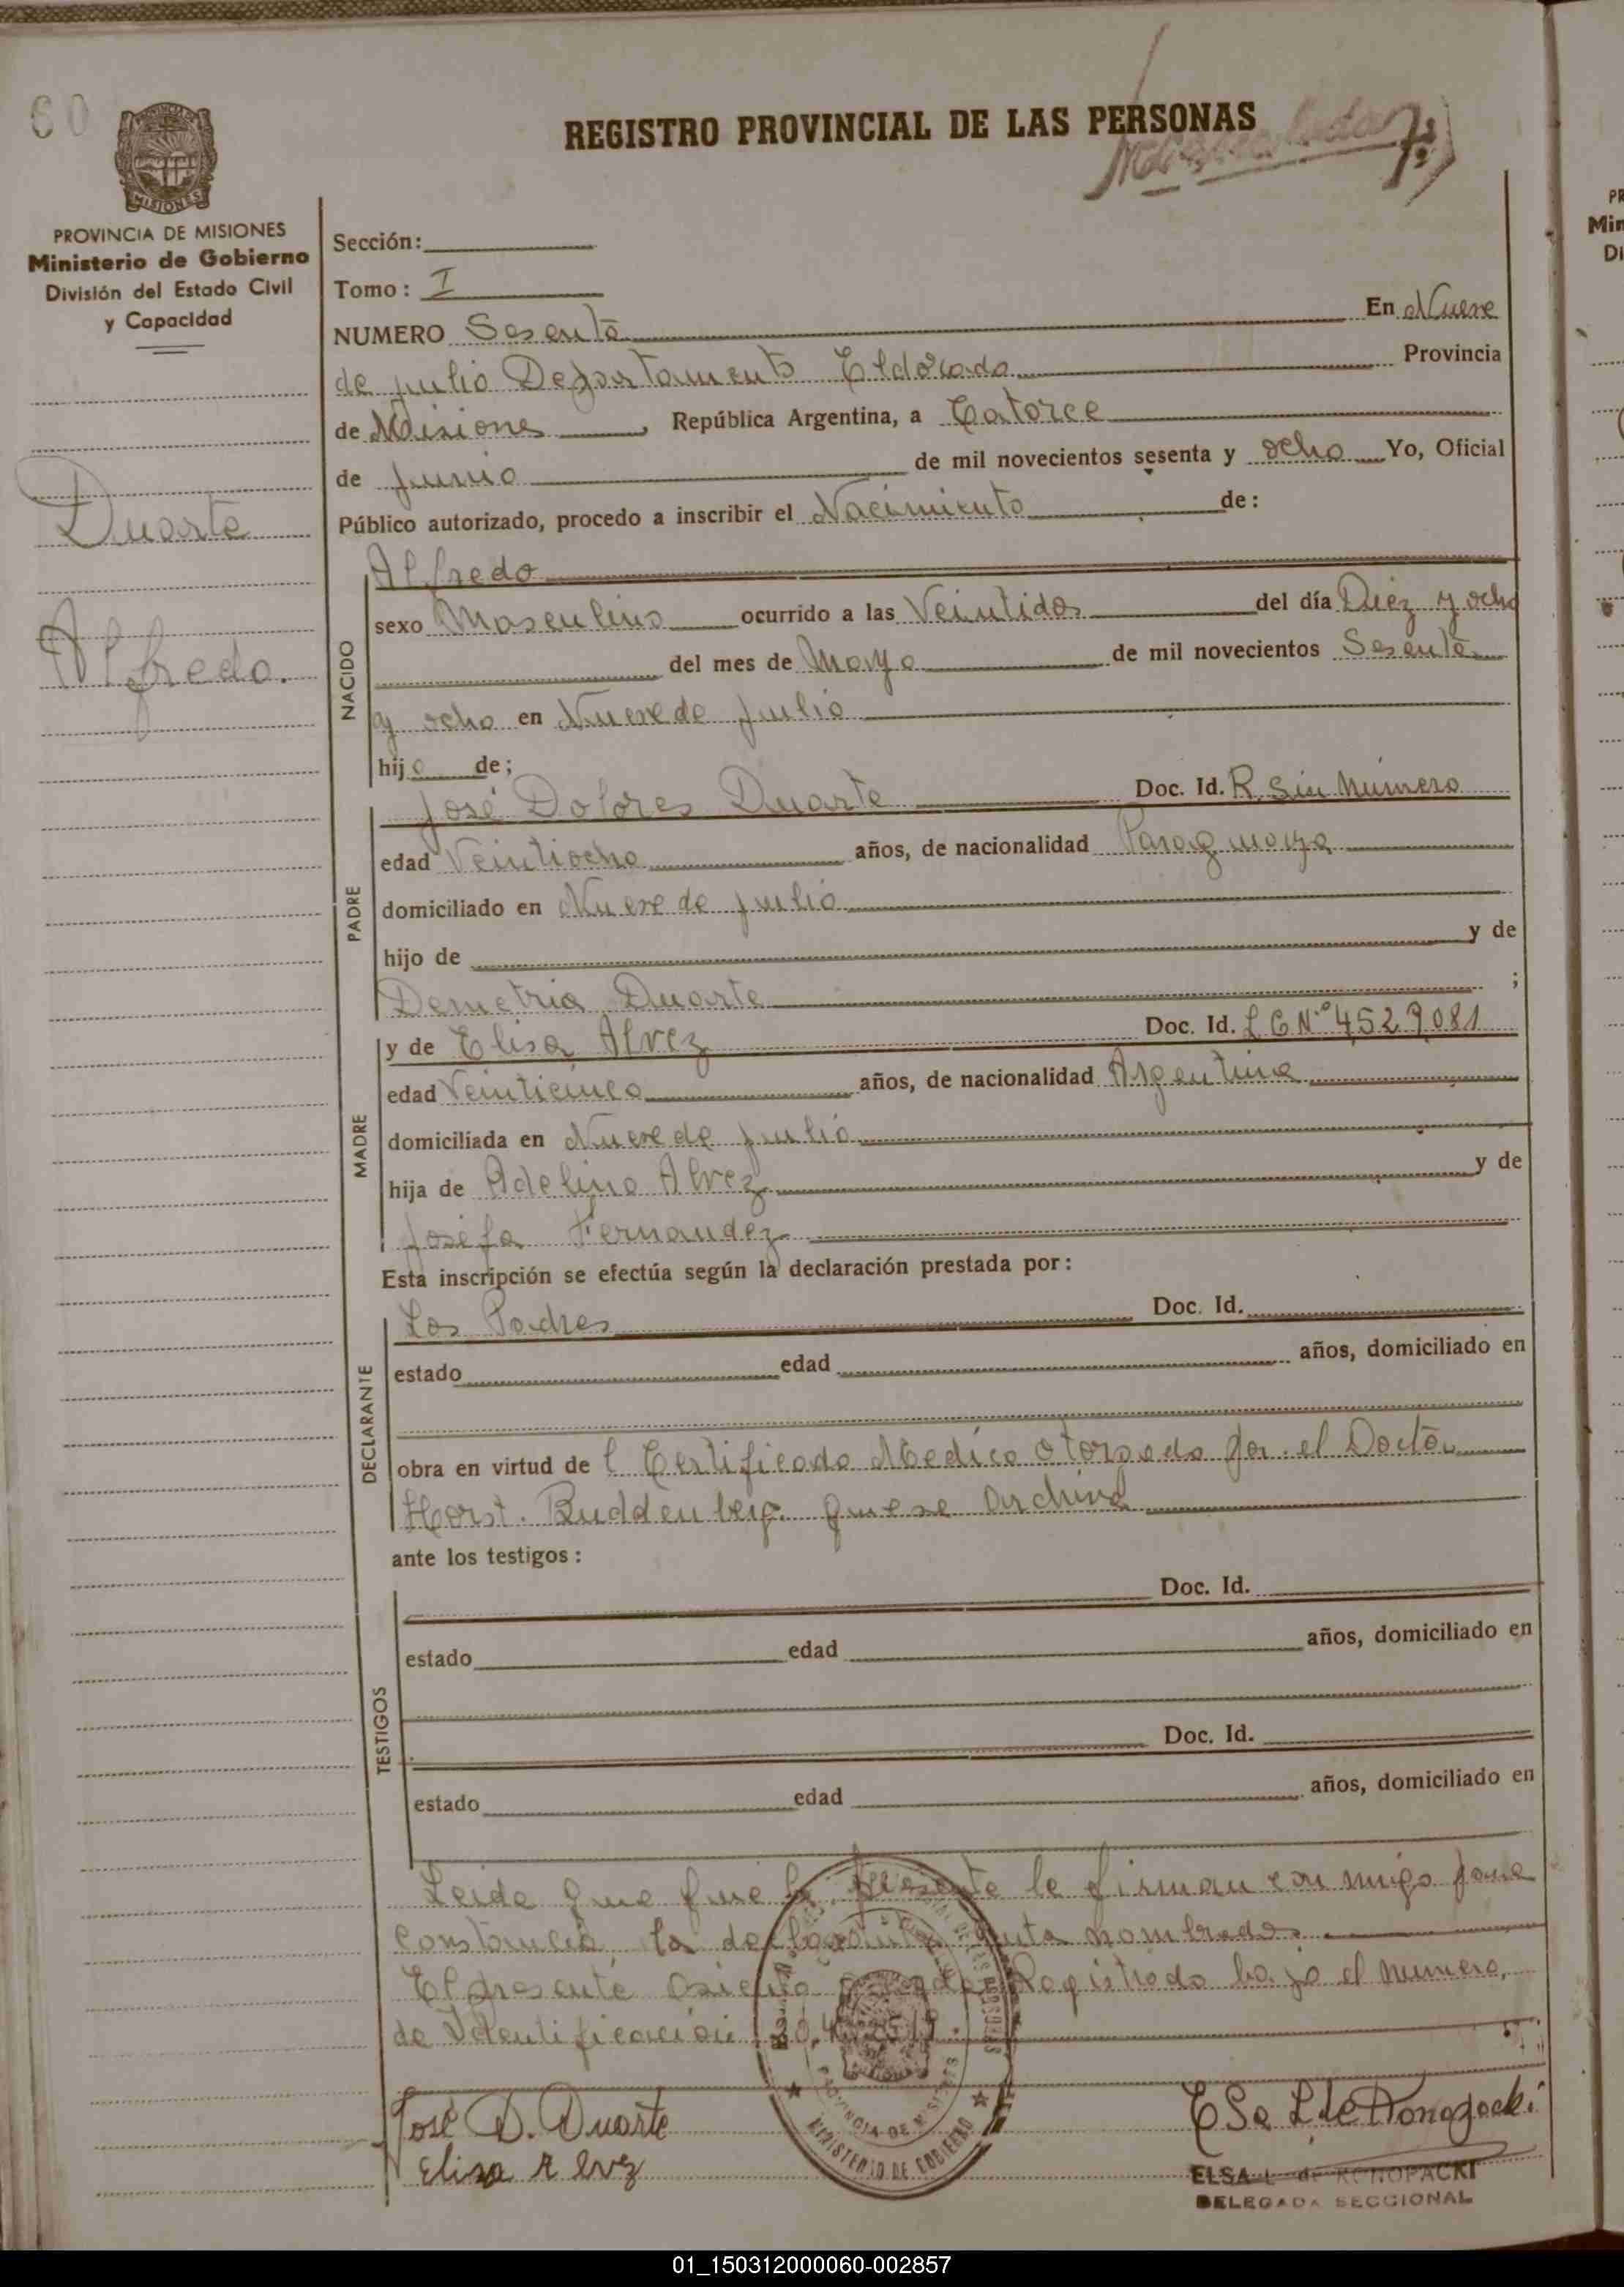 60
REGISTRO PROVINCIAL DE LAS PERSONAS
MISIONES
PROVINCIA DE MISIONES
Ministerio de Gobierno
División del Estado Civil
y Capacidad
Duarte
Alfredo.
Sección:
Tomo: I
NUMERO Sesenta En Nueve
de julio Departamento Eldorado Provincia
de Misiones, República Argentina, a Catorce
de Junio de mil novecientos sesenta y ocho Yo, Oficial
Público autorizado, procedo a inscribir el Nacimiento de:
NACIDO
Alfredo
sexo Masculino ocurrido a las Veintidos del día Diez y ocho
del mes de Mayo de mil novecientos Sesenta
y ocho en Nueve de Julio
hijo de;
PADRE
José Dolores Duarte Doc. Id. R. Sin Número
edad Veintiocho años, de nacionalidad Paraguaya
domiciliado en Nueve de julio
hijo de y de
Demetria Duarte ;
MADRE
y de Elisa Alvez Doc. Id. L C Nº 4,529,081
edad Veinticinco años, de nacionalidad Argentina
domiciliada en Nueve de julio
hija de Adelino Alvez y de
Josefa Fernandez
Esta inscripción se efectúa según la declaración prestada por:
DECLARANTE
Los Padres Doc. Id.
estado edad años, domiciliado en
obra en virtud de l Certificado Medico otorgado por el Doctor
Horst. Buddenberg. que se archiva
ante los testigos:
TESTIGOS
Doc. Id.
estado edad años, domiciliado en
Doc. Id.
estado edad años, domiciliado en
Leida que fue la presente le firman con migo para
constancia la de nombrados.
El presente asiento Registrado bajo el numero,
de Identificación
PROVINCIA DE MISIONES
MINISTERIO DE GOBIERNO
José D. Duarte
Elisa Alvez
ELSA L. de KONOPACKI
DELEGADA SECCIONAL
01_150312000060-002857